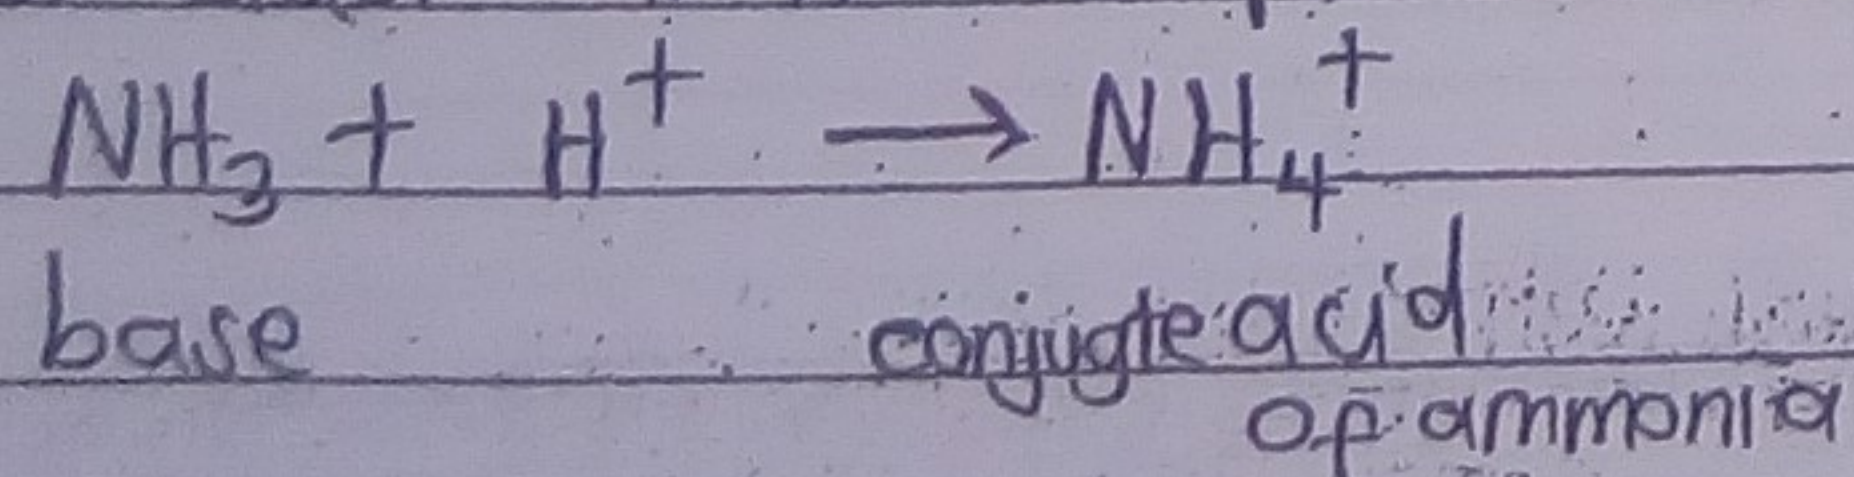 NH₃ + H⁺ → NH₄⁺
base conjugte acid
of ammonia